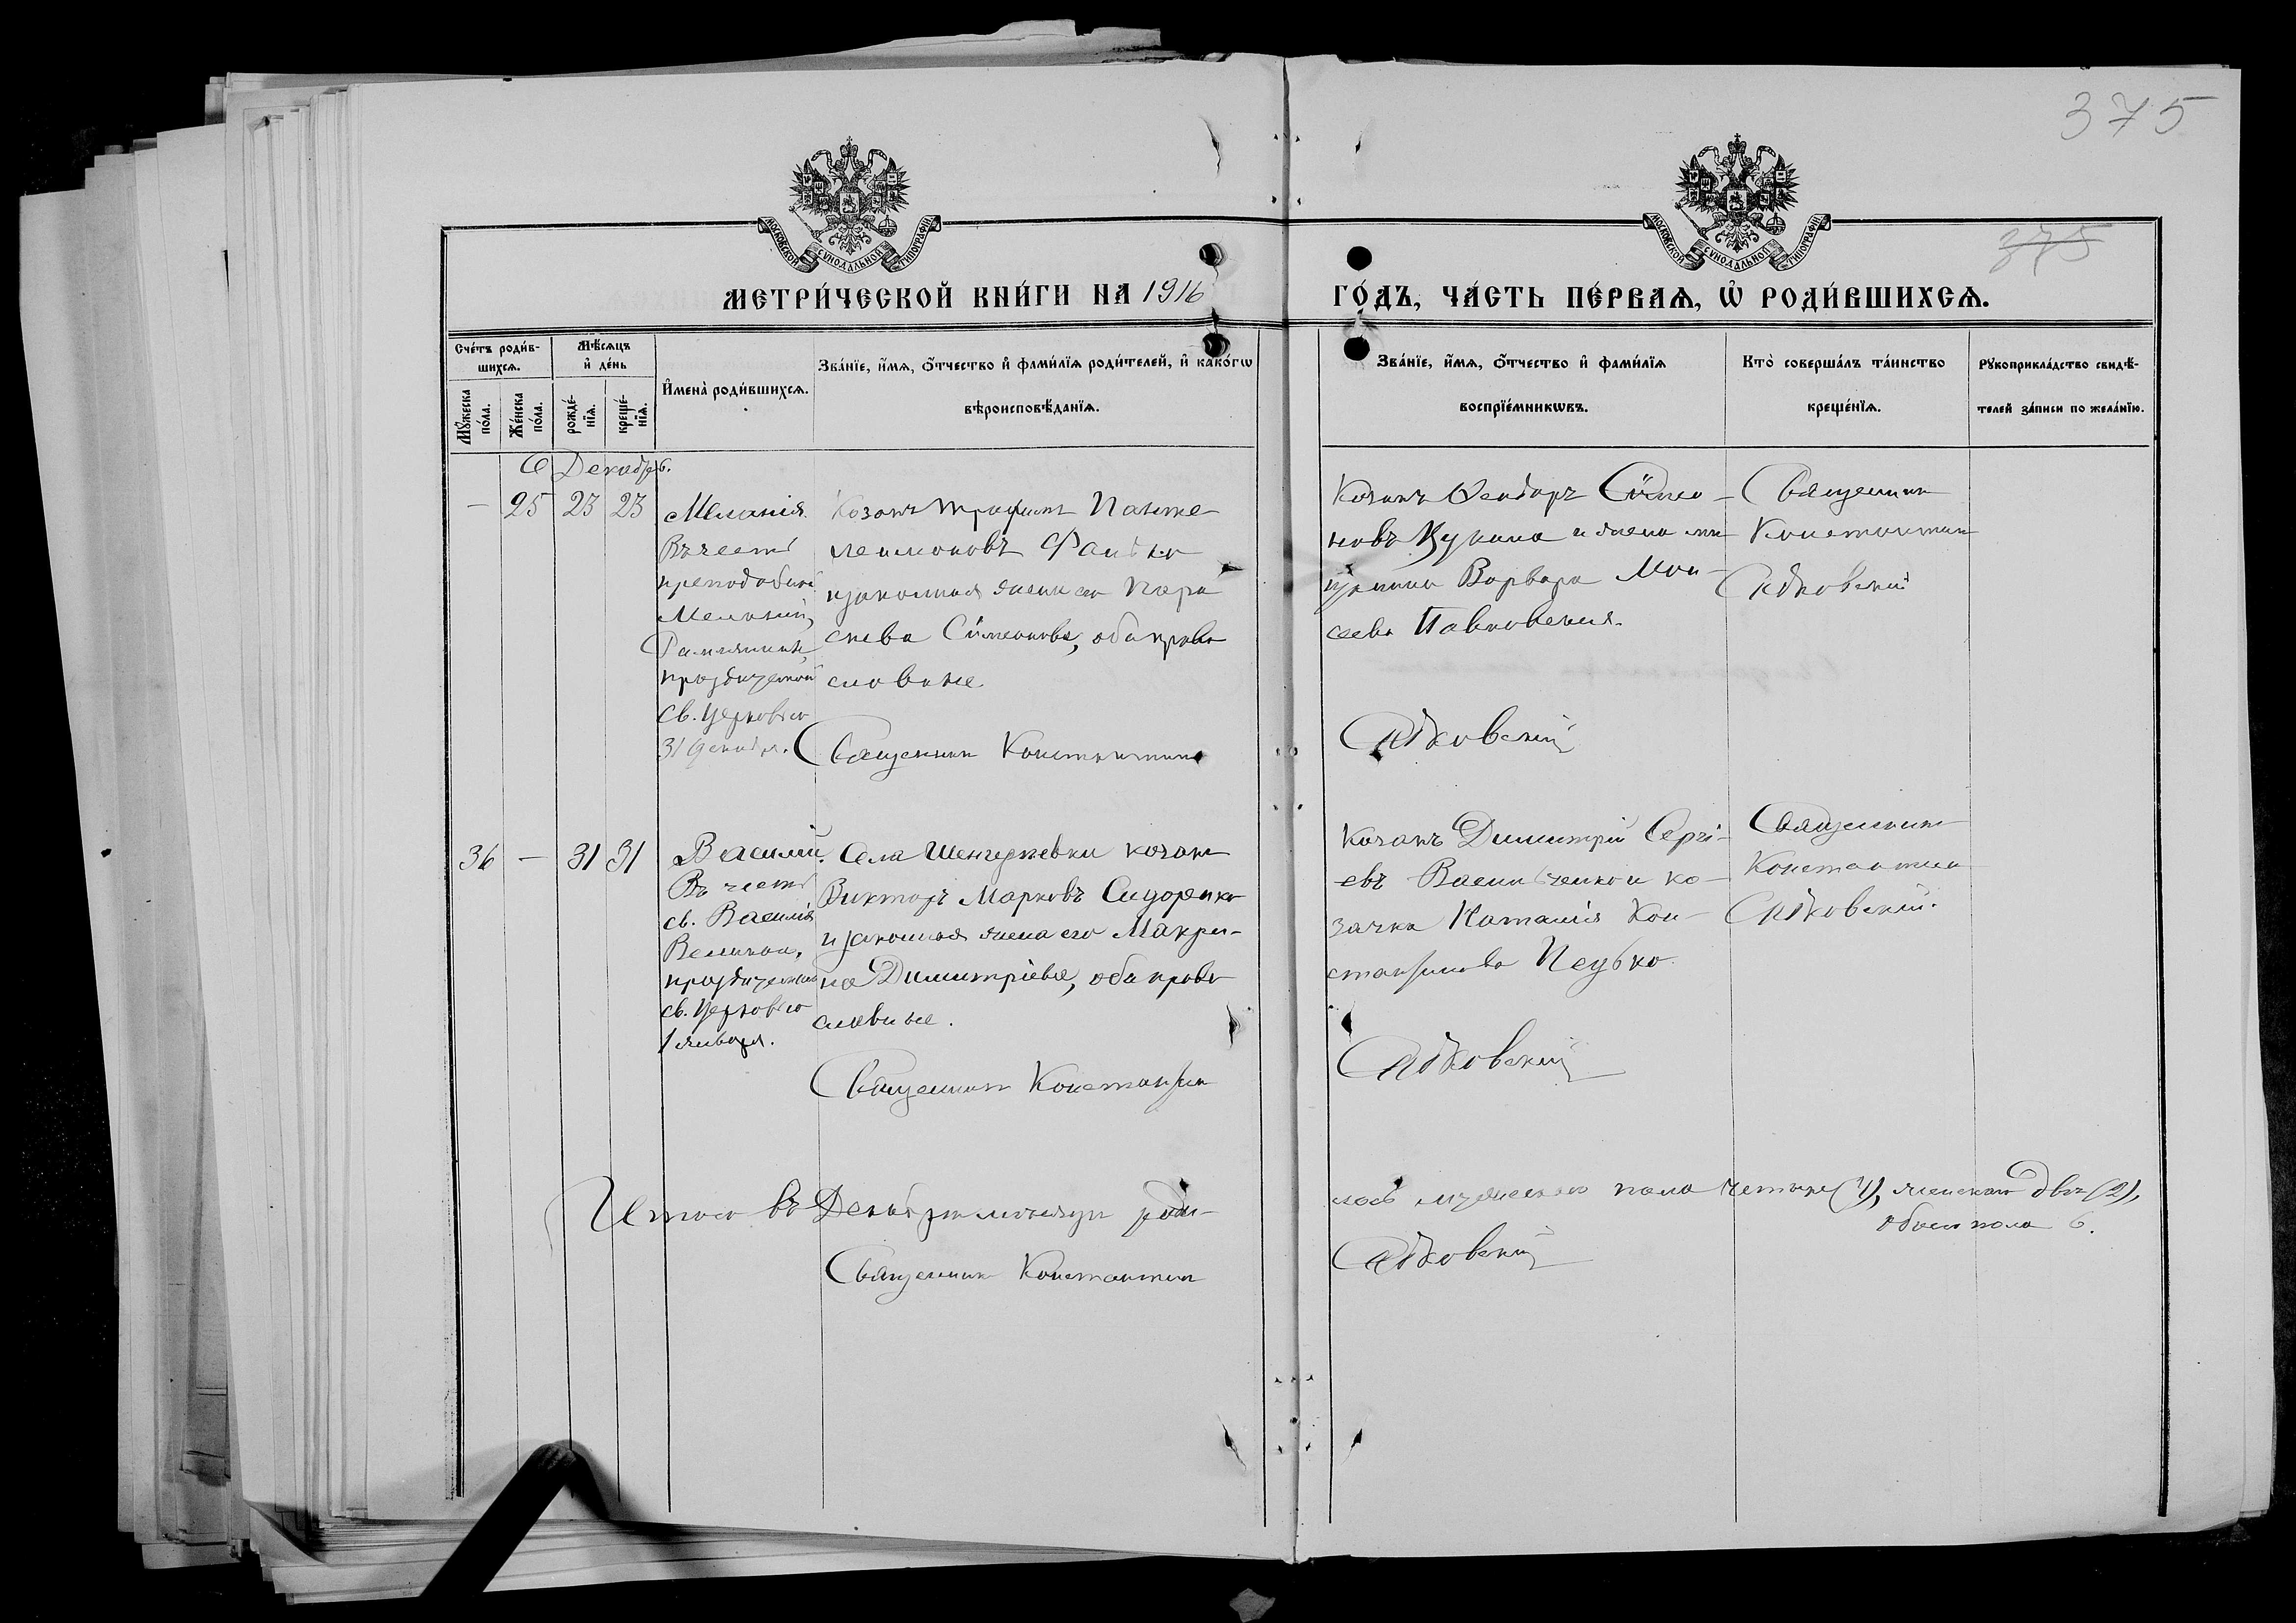 375
375
МОСКОВСКОЙ СѴНОДАЛЬНОЙ ТИПОГРАФІИ
МОСКОВСКОЙ СѴНОДАЛЬНОЙ ТИПОГРАФІИ
МЕТРИ́ЧЕСКОЙ КНИ́ГИ НА 1916 ГО́ДЪ, ЧА́СТЬ ПЕ́РВАѦ, Ѡ҆ РОДИ́ВШИХСѦ.
Сче́тъ роди́в-
шихсѧ.
Мѹ́жеска по́ла.
Же́нска по́ла.
Мѣ́сѧцъ
и҆ де́нь
рожде́-
нїѧ.
креще́-
нїѧ.
И҆мена̀ роди́вшихсѧ.
Зва́нїе, и҆́мѧ, ѻ҆́тчество и҆ фами́лїѧ роди́телей, и҆ како́гѡ
вѣроисповѣ́данїѧ.
Зва́нїе, и҆́мѧ, ѻ҆́тчество и҆ фами́лїѧ
воспрїе́мникѡвъ.
Кто̀ соверша́лъ та́инство
креще́нїѧ.
Рꙋкоприкла́дство свидѣ́-
телей за́писи по жела́нїю.
Декабрь.
— 25 23 23
Меланія.
Въ честь
преподобной
Меланіи,
Римлянини,
празднуемой
св. Церковію
31 декабря.
Козакъ Трофимъ Панте-
леимоновъ
и законная жена его Пара-
скева Симеонова, оба право-
славные
Священник Константинъ
Козакъ Феодоръ Симео-
новъ и жена
Варвара Мои-
сеева Павковская.
Священник
Константин
36 — 31 31
Василій.
Въ честь
св. Василія
Великаго,
празднуемаго
св. Церковію
1 января.
Села козакъ
Викторъ Марковъ Сидоренко
и законная жена его Макри-
на Димитріева, оба право-
славные.
Священникъ Константин
Козакъ Димитрій Сергі-
евъ Васильченко и ко-
зачка Наталія Кон-
стантинова
Священникъ
Константин
Итого въ Декабре месяце роди-
лось мужескаго пола четыре (4), женскаго два (2),
обоего пола 6.
Священник Константин